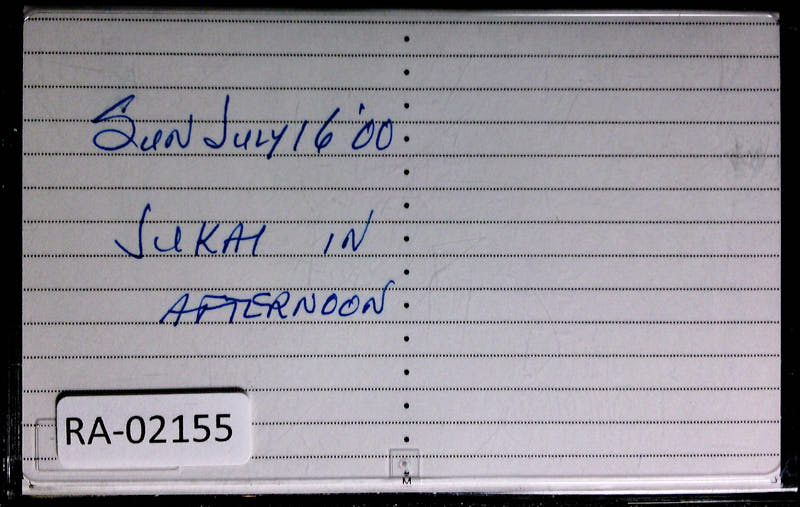 SUN JULY 16 '00
JUKAI IN
AFTERNOON
RA-02155
M